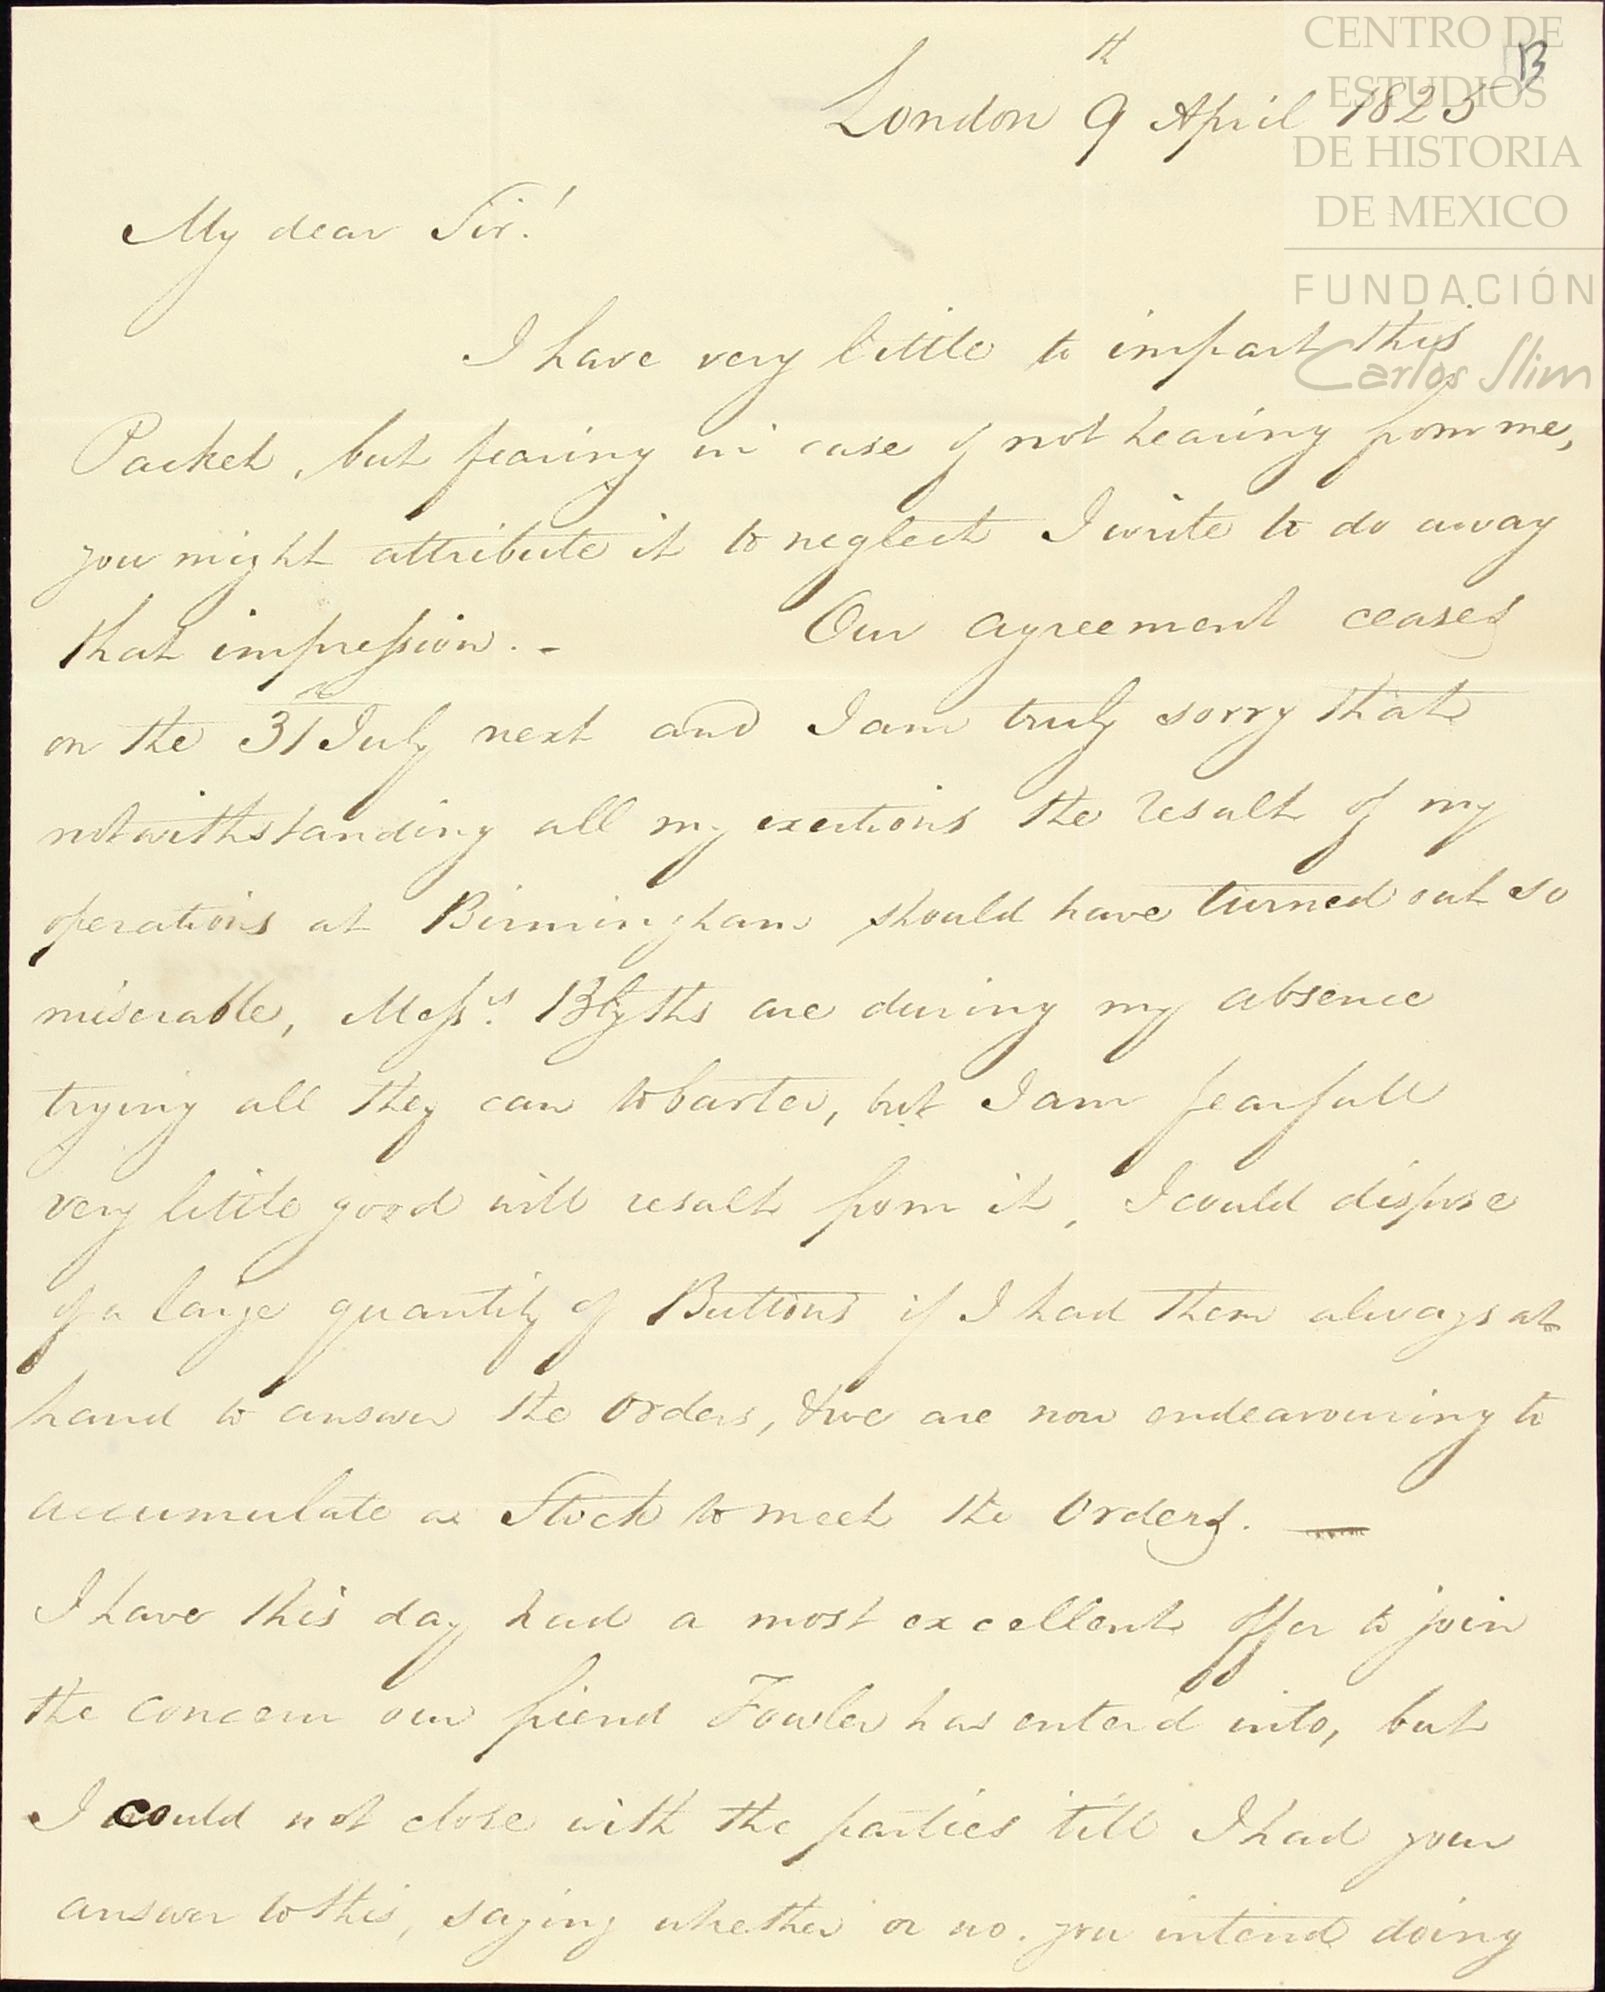 CENTRO DE
ESTUDIOS
DE HISTORIA
DE MEXICO
FUNDACIÓN
Carlos Slim
B
London 9th April 1825
My dear Sir!
I have very little to impart this
Packet, but fearing in case of not hearing from me,
you might attribute it to neglect I write to do away
that impression. - Our agreement ceases
on the 31st July next and I am truly sorry that
notwithstanding all my exertions the result of my
operations at Birmingham should have turned out so
miserable, Messrs. Blyths are during my absence
trying all they can to barter, but I am fearfull
very little good will result from it, I could dispose
of a large quantity of Buttons if I had them always at
hand to answer the Orders, & we are now endeavouring to
accumulate a Stock to meet the Orders. —
I have this day had a most excellent offer to join
the concern our friend Fowler has enterd into, but
I could not close with the parties till I had your
answer to this, saying whether or no. you intend doing